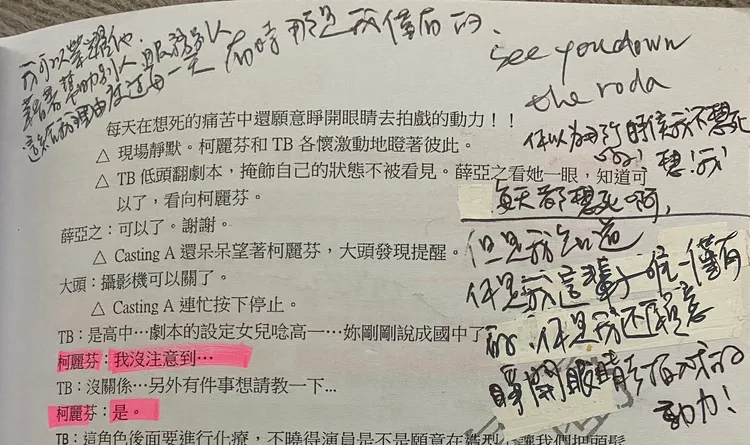 我可以榮耀他
藉著幫助別人服務別人
這給我理由度過每一天
有時那是我僅有的.
see you down
the roda
每天在想死的痛苦中還願意睜開眼睛去拍戲的動力！！
△ 現場靜默。柯麗芬和 TB 各懷激動地瞪著彼此。
△ TB 低頭翻劇本，掩飾自己的狀態不被看見。薛亞之看她一眼，知道可
以了，看向柯麗芬。
薛亞之：可以了。謝謝。
△ Casting A 還呆呆望著柯麗芬，大頭發現提醒。
大頭：攝影機可以關了。
△ Casting A 連忙按下停止。
TB：是高中…劇本的設定女兒唸高一…妳剛剛說成國中了
柯麗芬：我沒注意到…
TB：沒關係…另外有件事想請教一下...
柯麗芬：是。
TB：這角色後面要進行化療，不曉得演員是不是願意在造型，讓我們把頭髮
你以為有時候我不想死
想！我
每天都想死啊，
但是我知道
你是我這輩子唯一僅有
的、你是我還願意
睜開眼睛去的
動力！